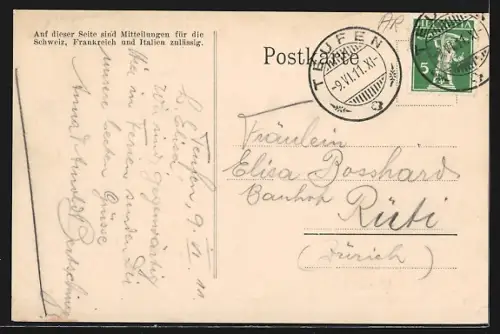 Auf dieser Seite sind Mitteilungen für die
Schweiz, Frankreich und Italien zulässig.
Postkarte
AR
TEUFEN
-9.VI.11.XI-
HELVETIA
5
TEUFEN
Teufen, 9. VI. 11.
L. Elisa!
Wir sind gegenwärtig
hier in Ferien & senden Dir
unsere besten Grüsse
Anna & Arnold
Fräulein
Elisa Bosshard
Bahnhof
Rüti
(Zürich)